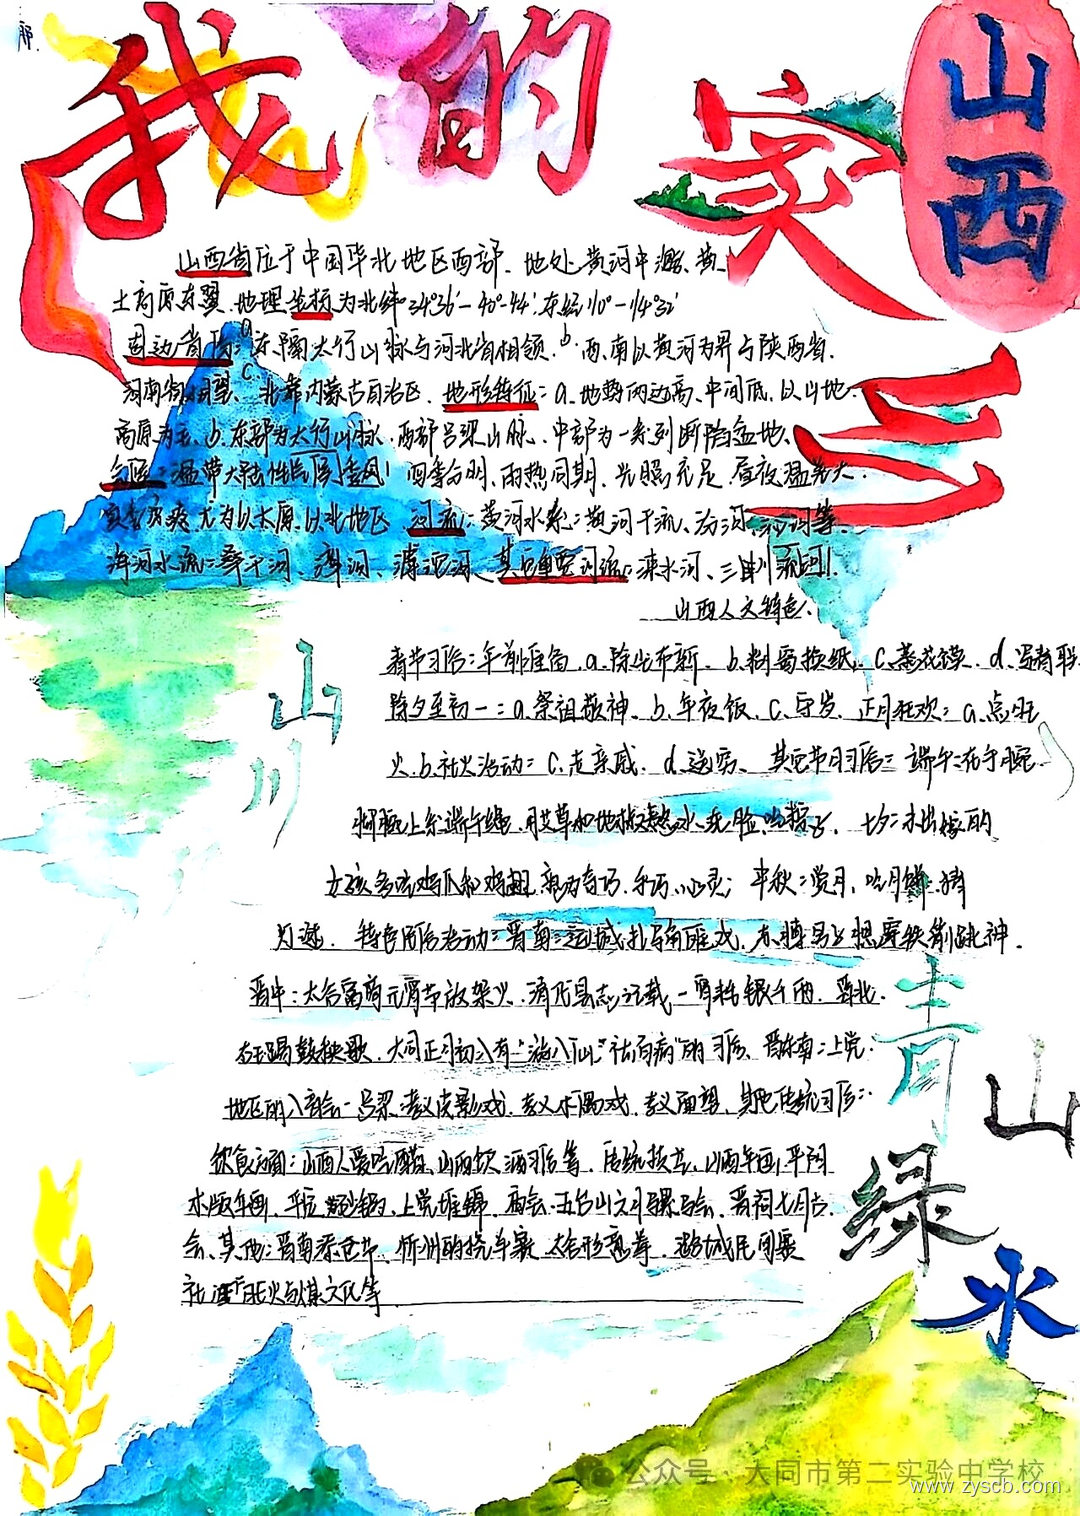 我的家乡
山西
山西省位于中国华北地区西部、地处黄河中游、黄
土高原东翼、地理坐标为北纬34°36′-40°44′,东经110°-114°32′
周边省份:a东隔太行山脉与河北省相领、b.西、南以黄河为界与陕西省、
河南省相望、c北靠内蒙古自治区、地形特征:a.地势两边高、中间低、以山地
高原为主、b.东部为太行山脉、西部吕梁山脉、中部为一系列断陷盆地、
气候:温带大陆性气候季风!四季分明、雨热同期、光照充足、昼夜温差大
尤为以太原以北地区、河流:黄河水系:黄河干流、汾河、沁河等、
海河水流:桑干河、漳河、滹沱河、其它重要河流:涑水河、三川河
山西人文特色.
春节习俗:年前准备、a.除尘布新、b.糊窗换纸、c.蒸花馍、d.写春联
除夕至初一:a.祭祖敬神、b.年夜饭、c.守岁、正月狂欢:a.点旺
火、b.社火活动:c.走亲戚、d.送穷、其它节日习俗:端午:在手腕
脚腕上系端午绳、用艾草和地椒熬水、洗脸、吃粽子、七夕:未出嫁的
女孩多吃鸡爪和鸡翅 意为奇巧、手巧、心灵;中秋:赏月、吃月饼、猜
灯谜、特色民俗活动:晋南:运城
晋中:太谷富商元宵节放架火、清代县志记载一宵耗银千两、晋北、
踢鼓秧歌、大同正月初八有"游八仙""祛百病"的习俗、晋东南:上党
地区的八音会、吕梁:孝义皮影戏、孝义木偶戏、孝义面塑、其他传统习俗:
饮食方面:山西人爱吃醋、山西饮酒习俗等、传统技艺、山西年画、平阳
木版年画、平定砂锅、上党堆锦、庙会:五台山六月骡马会、晋祠七月六
会、其他:晋南添仓节、忻州的挠羊赛、太谷形意拳、
社 旺火与煤文化等
山川
青山
绿水
公众号·大同市第二实验中学校
www.zyscb.com